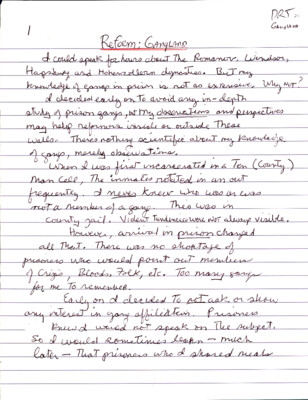 DRJ-
Gangland
1
Reform: Gangland
I could speak for hours about The Romanov, Windsor,
Hapsburg and Hohenzollern dynasties. But my
knowledge of gangs in prison is not as extensive. Why not?
I decided early on to avoid any in-depth
study of prison gangs, yet my observations and perspectives
may help reformers inside or outside These
walls. There's nothing scientific about my knowledge
of gangs, merely observations.
When I was first incarcerated in a Ten (County)
Man Cell, The inmates rotated in an out
frequently. I never knew who was or was
not a member of a gang. This was in
county jail. Violent Tendencies were not always visible.
However, arrival in prison changed
all That. There was no shortage of
prisoners who would point out members
of Crips, Bloods, Folk, etc. Too many gangs
for me to remember.
Early on I decided to not ask or show
any interest in gang affiliation. Prisoners
knew I would not speak on The subject.
So I would sometimes learn — much
later — That prisoners who I shared meals